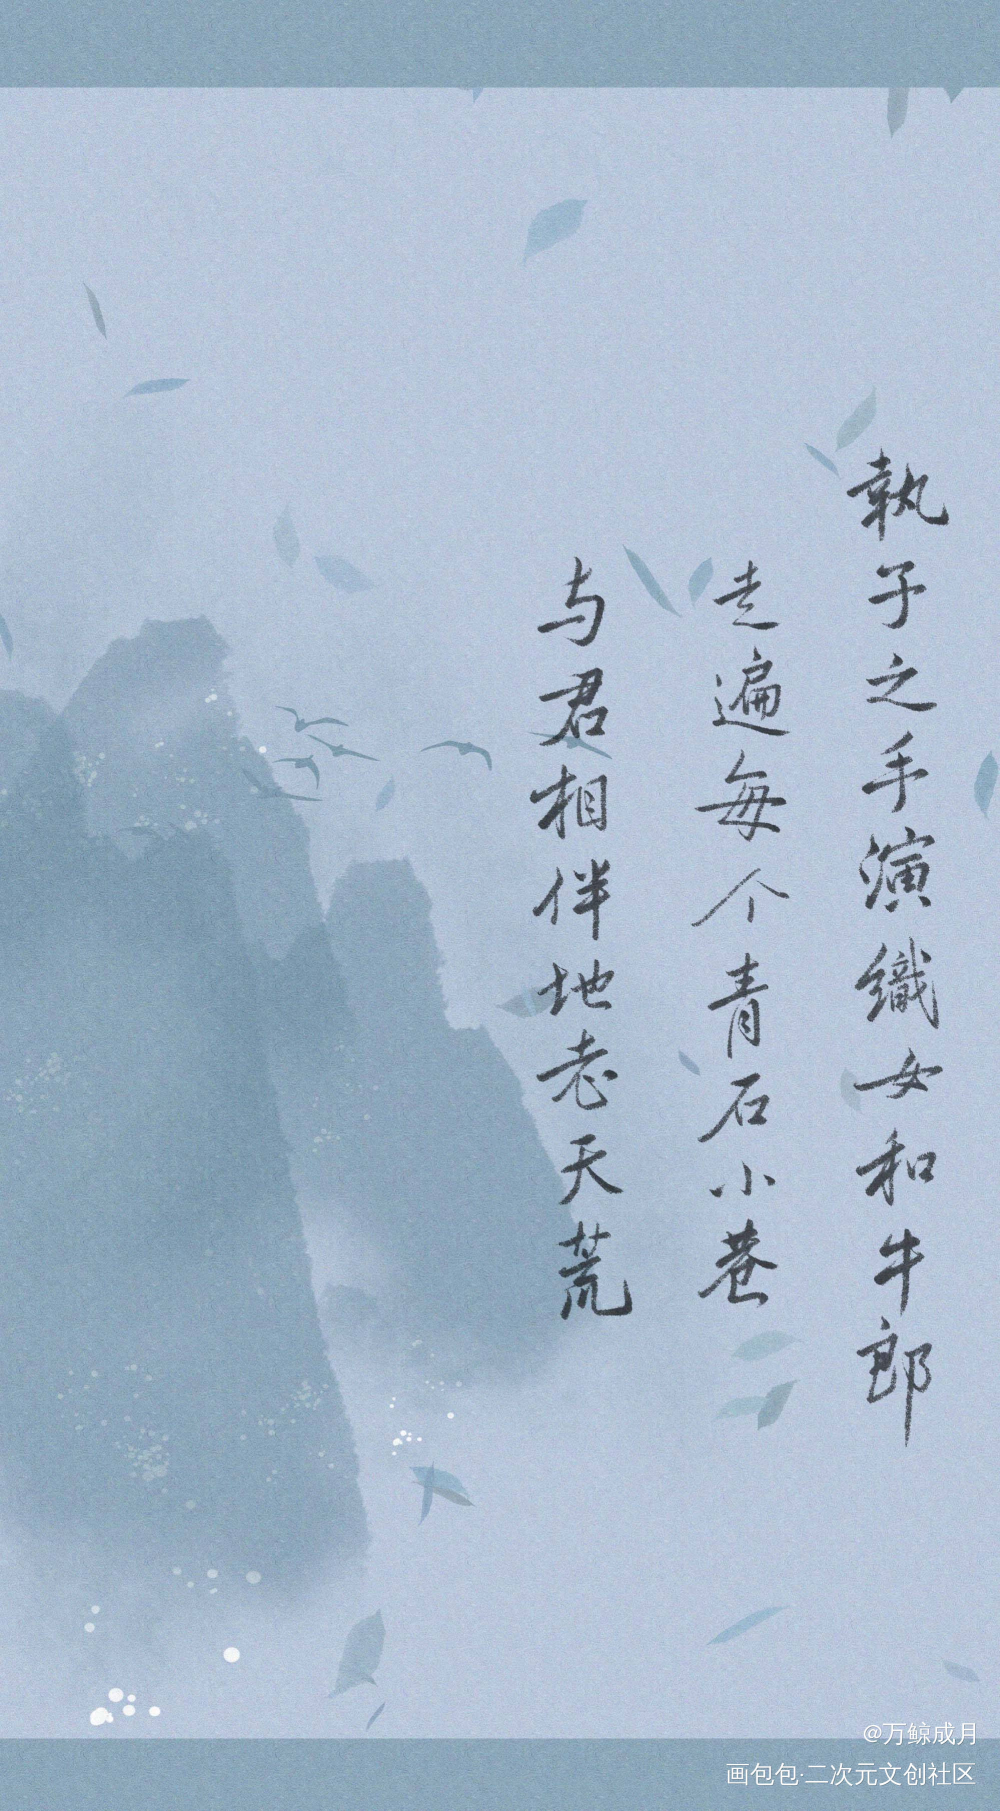 執子之手演織女和牛郎
走遍每个青石小巷
与君相伴地老天荒
@万鲸成月
画包包·二次元文创社区